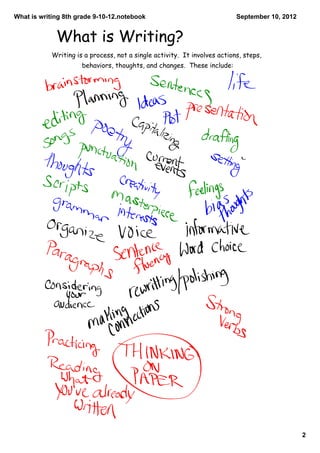 What is writing 8th grade 9-10-12.notebook
September 10, 2012
What is Writing?
Writing is a process, not a single activity. It involves actions, steps,
behaviors, thoughts, and changes. These include:
brainstorming
Sentences
life
Planning
Ideas
presentation
editing
poetry
Capitalizing
Plot
drafting
songs
punctuation
current
events
setting
Thoughts
Scripts
Creativity
feelings
grammar
masterpiece
interests
big
thoughts
Organize
Voice
informative
Paragraphs
Sentence
fluency
Word Choice
Considering
your
audience
rewriting/polishing
making
connections
Strong
Verbs
Practicing
THINKING
ON
PAPER
Reading
What
You've already
Written
2